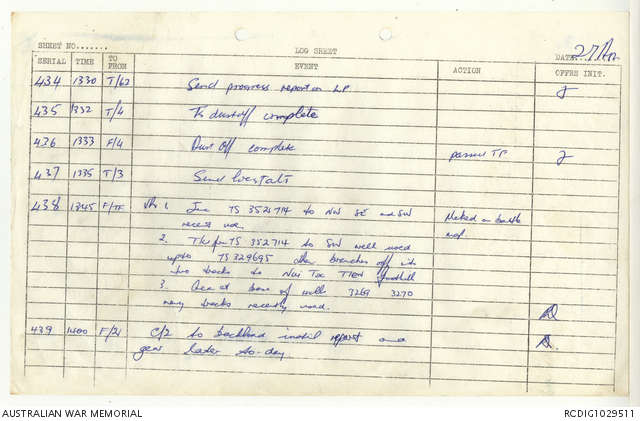 SHEET NO.......
LOG SHEET
DATE 27 Apr
SERIAL TIME TO FROM EVENT ACTION OFFRS INIT.
434 1330 T/62 Send progress report on LP
435 1332 T/4 Is dustoff complete
436 1333 F/4 Dust Off complete passed TF
437 1335 T/3 Send locstats
438 1345 F/TF 1. YS 352714 to NW SE and SW Marked on battle
recent use. map
2. YS 352714 to SW well used
upto YS 329695 other branches off into
two tracks to Nui Toc Tien foothill
3. Area at base of hills 3269 3270
many tracks recently used.
439 1400 F/2 C/2 to backload report and
gear later to-day
AUSTRALIAN WAR MEMORIAL
RCDIG1029511